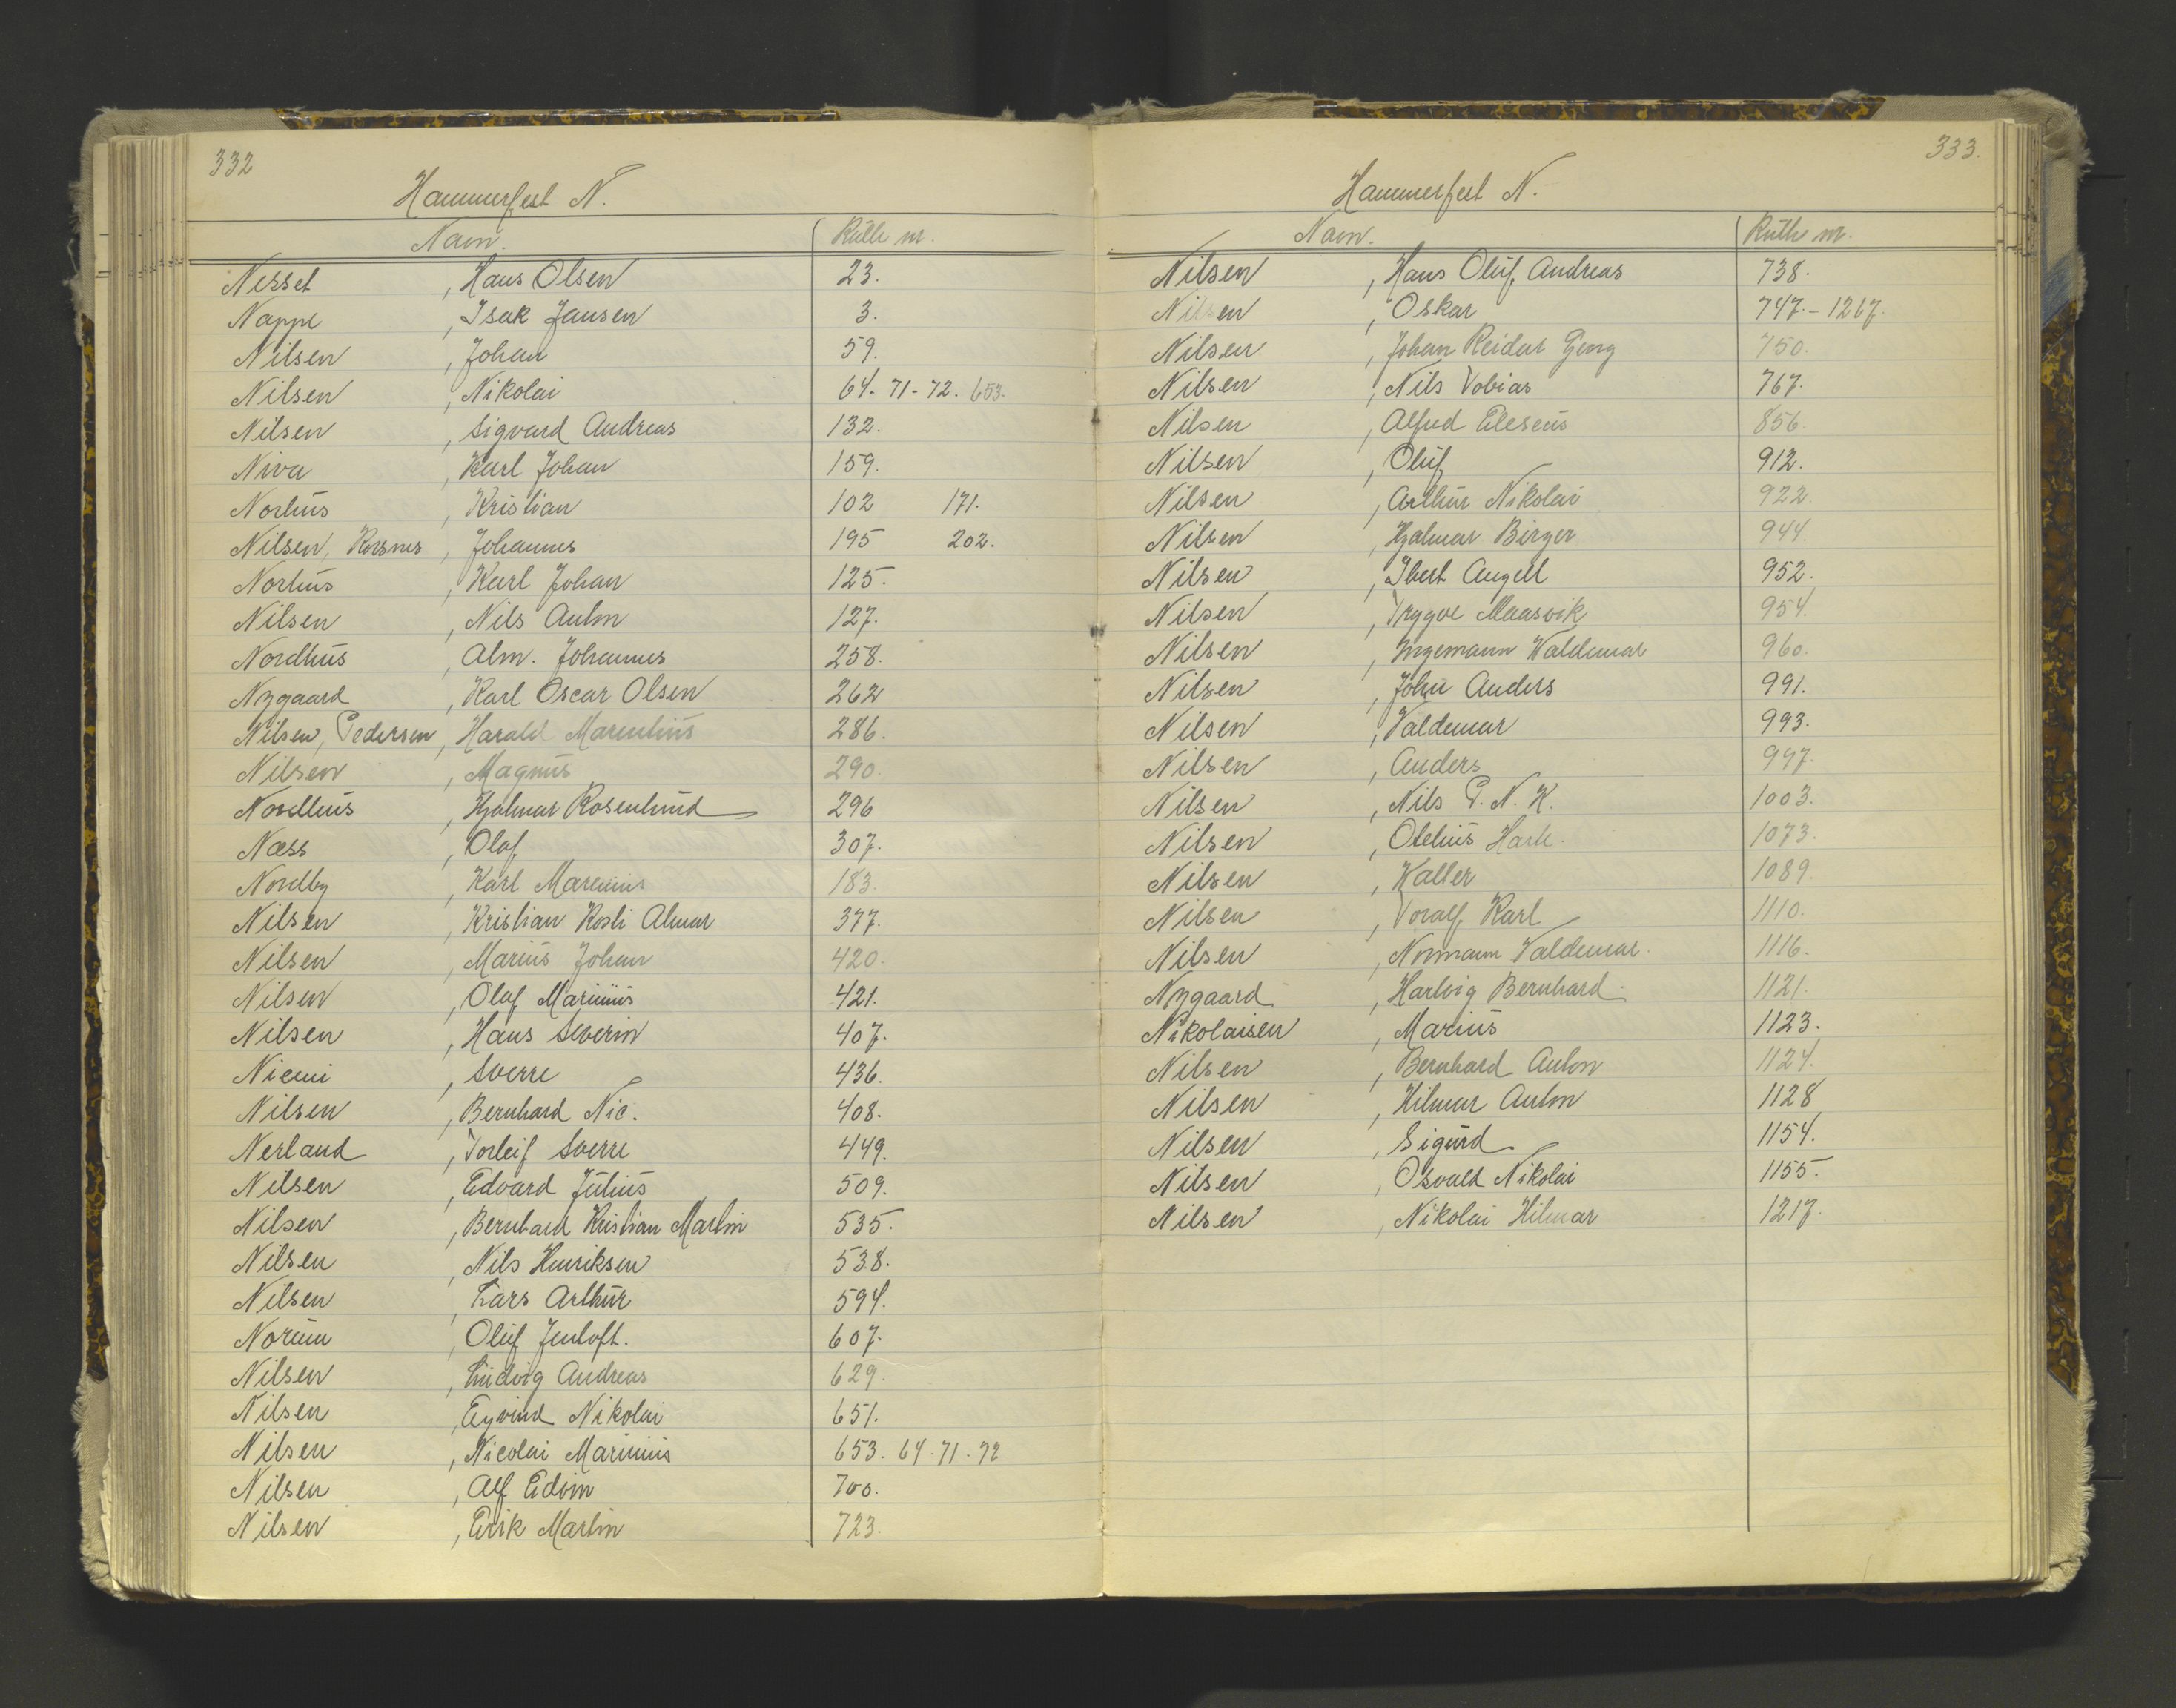 332
Hammerfest N.
Navn. Rulle nr.
Nesset, Hans Olsen 23.
Nappe, Isak Jansen 3.
Nilsen, Johan 59.
Nilsen, Nikolai 64-71-72. 653.
Nilsen, Sigvard Andreas 132.
Niva, Karl Johan 159.
Norhus, Kristian 102 171.
Nilsen, Korsnes, Johannes 195 202.
Norhus, Karl Johan 125.
Nilsen, Nils Anton 127.
Nordhus, Alm. Johannes 258.
Nygaard, Karl Oscar Olsen 262
Nilsen, Pedersen, Harald Marentius 286.
Nilsen, Magnus 290.
Nordhus, Hjalmar Rosenlund 296
Næss, Olaf 307.
Nordby, Karl Marenius 183.
Nilsen, Kristian Almar 377.
Nilsen, Marius Johan 420.
Nilsen, Olaf Marinius 421.
Nilsen, Hans Severin 407.
Niemi, Sverre 436.
Nilsen, Bernhard Nic. 408.
Nerland, Torleif Sverre 449.
Nilsen, Edvard Julius 509.
Nilsen, Bernhard Kristian Martin 535.
Nilsen, Nils Henriksen 538.
Nilsen, Lars Arthur 594.
Norum, Oluf Jentoft. 607.
Nilsen, Ludvig Andreas 629.
Nilsen, Eyvind Nikolai 651.
Nilsen, Nicolai Marinius 653. 64-71-72
Nilsen, Alf Edvin 700.
Nilsen, Erik Martin 723.
333.
Hammerfest N.
Navn. Rulle nr.
Nilsen, Hans Oluf Andreas 738.
Nilsen, Oskar 747.-1267.
Nilsen, Johan Reidar Georg 750.
Nilsen, Nils Tobias 767.
Nilsen, Alfred Eleseus 856.
Nilsen, Oluf 912.
Nilsen, Arthur Nikolai 922.
Nilsen, Hjalmar Birger 944.
Nilsen, Angell 952.
Nilsen, Trygve Maasvik 954.
Nilsen, Ingemann Waldemar 960.
Nilsen, John Anders 991.
Nilsen, Valdemar 993.
Nilsen, Anders 997.
Nilsen, Nils P. N. K. 1003.
Nilsen, Otelius 1073.
Nilsen, Walter 1089.
Nilsen, Toralf Karl 1110.
Nilsen, Normann Valdemar. 1116.
Nygaard, Hartvig Bernhard. 1121.
Nikolaisen, Marius 1123.
Nilsen, Bernhard Anton 1124.
Nilsen, Hilmar Anton 1128
Nilsen, Sigurd 1154.
Nilsen, Osvald Nikolai 1155.
Nilsen, Nikolai Hilmar 1217.